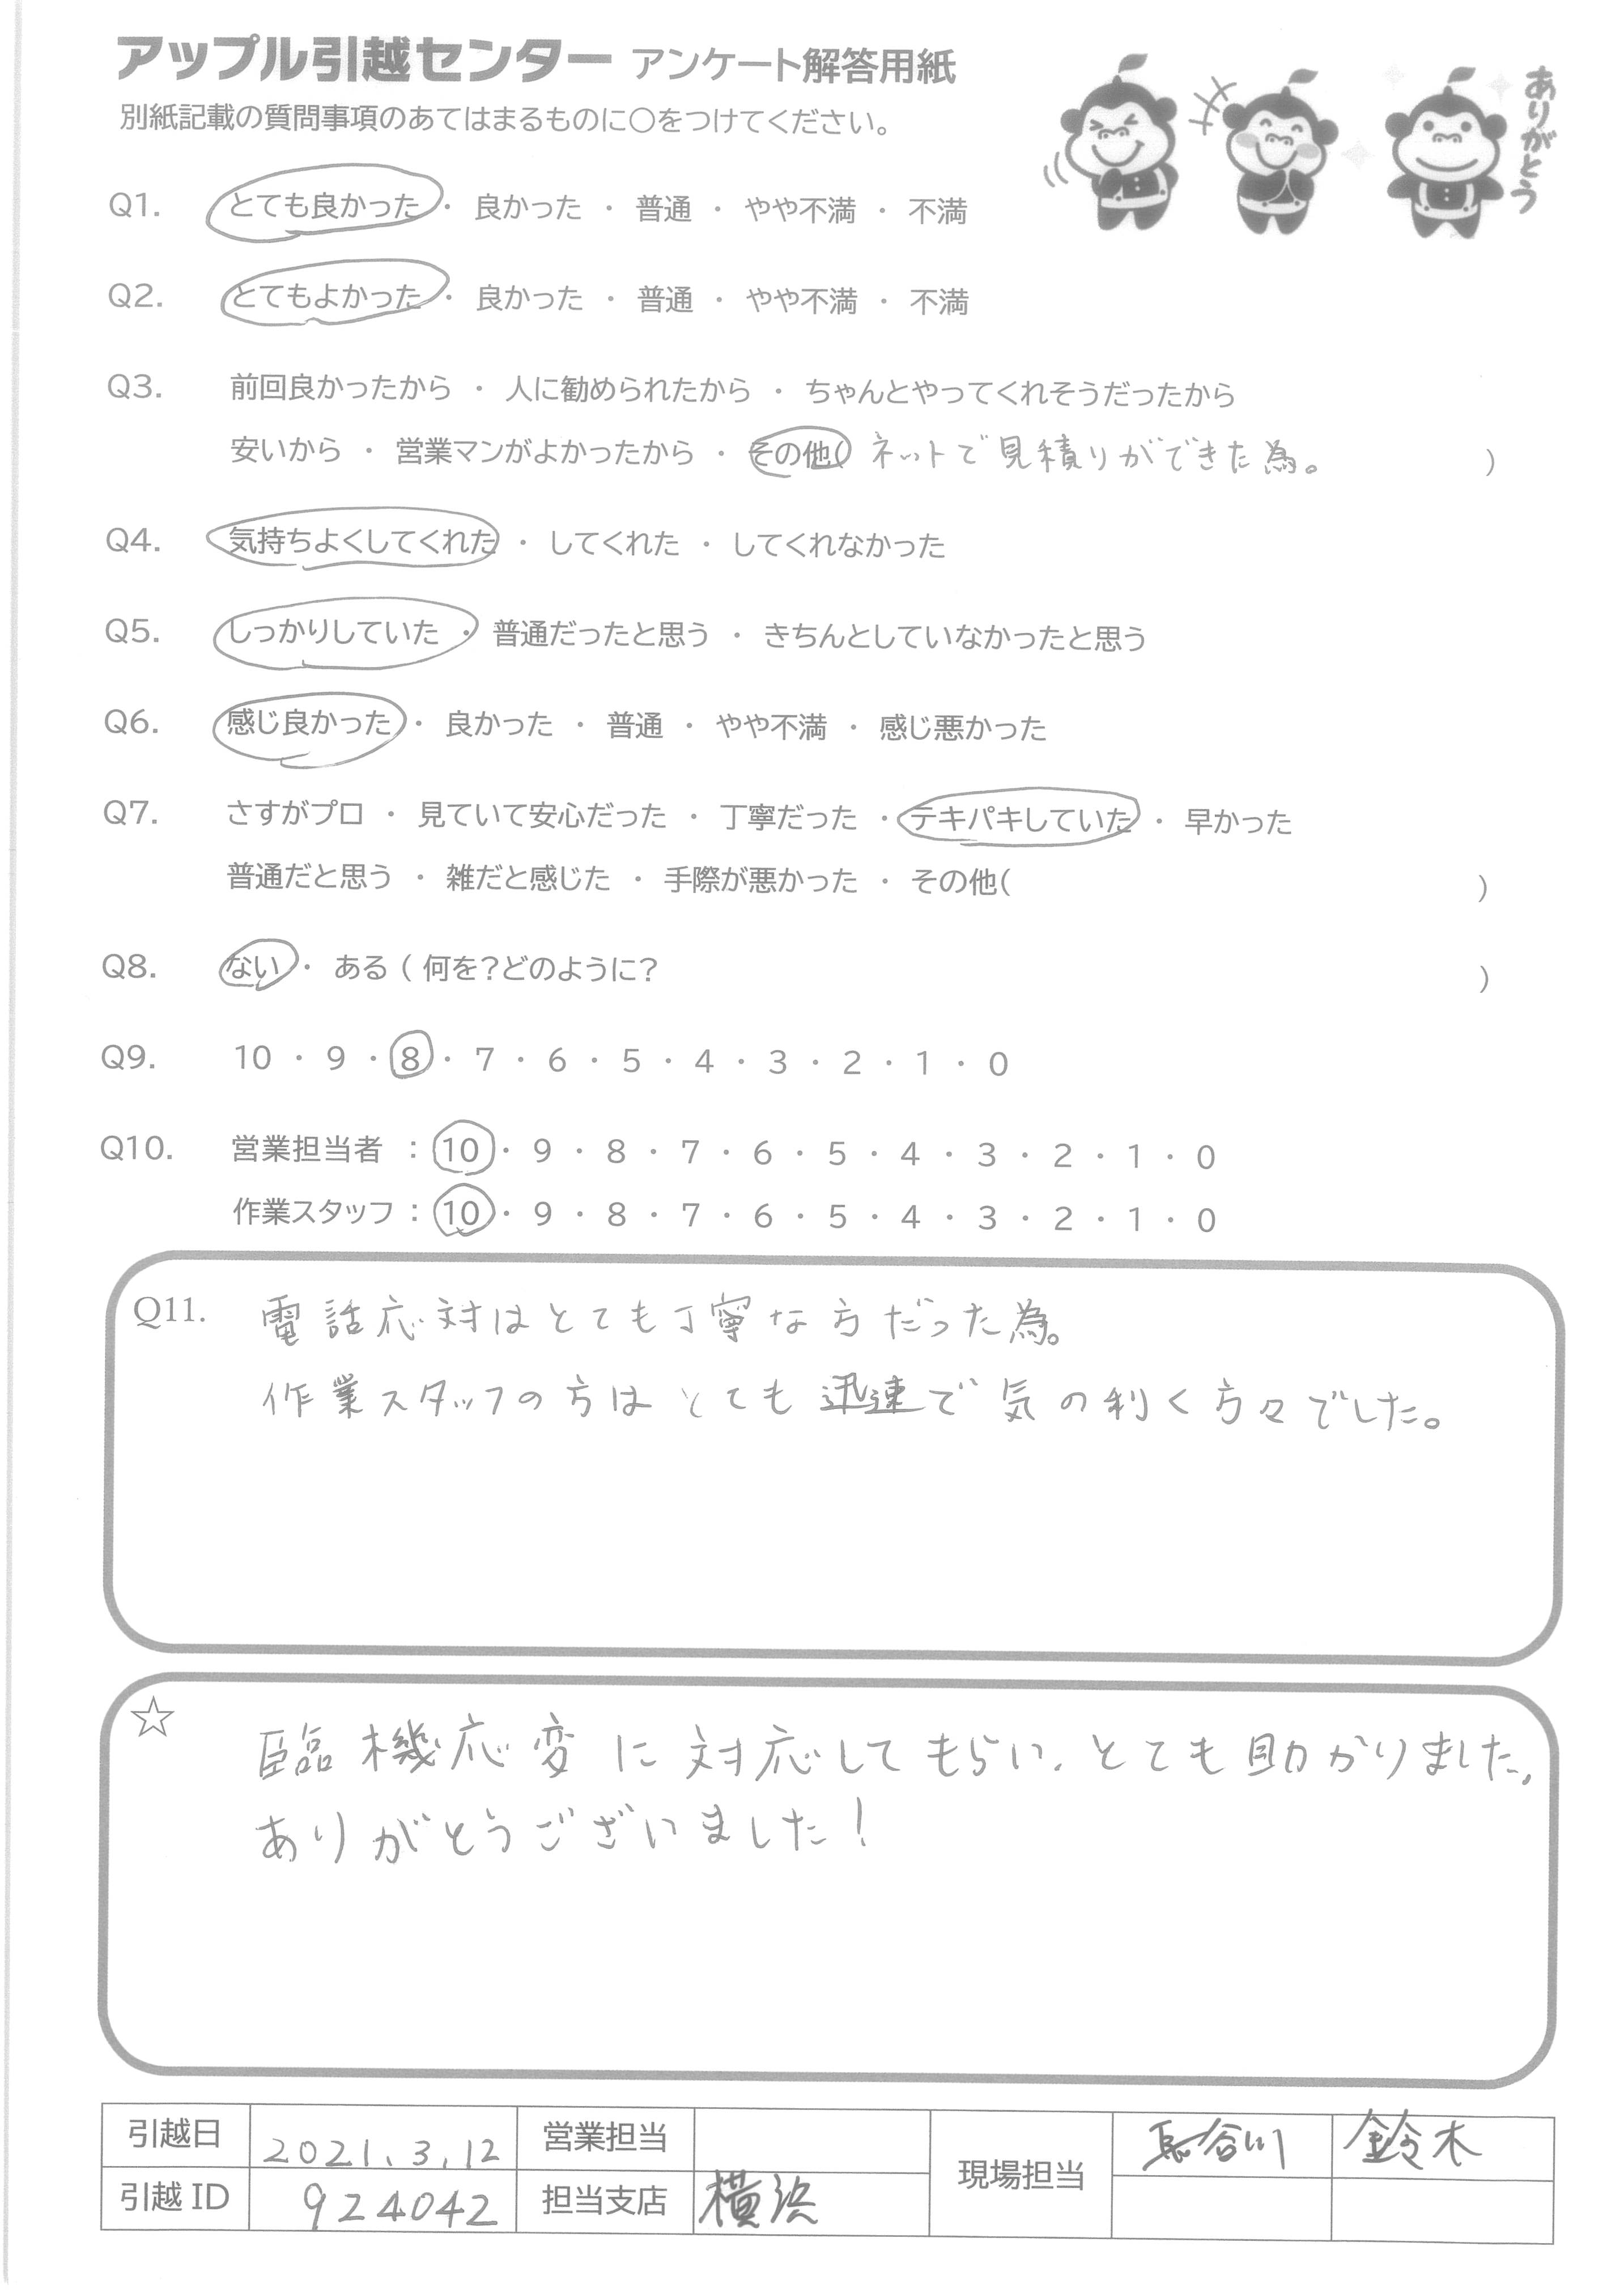 アップル引越センター アンケート解答用紙
別紙記載の質問事項のあてはまるものに○をつけてください。
ありがとう
Q1. とても良かった ・ 良かった ・ 普通 ・ やや不満 ・ 不満
Q2. とてもよかった ・ 良かった ・ 普通 ・ やや不満 ・ 不満
Q3. 前回良かったから ・ 人に勧められたから ・ ちゃんとやってくれそうだったから
安いから ・ 営業マンがよかったから ・ その他( ネットで見積りができた為。 )
Q4. 気持ちよくしてくれた ・ してくれた ・ してくれなかった
Q5. しっかりしていた ・ 普通だったと思う ・ きちんとしていなかったと思う
Q6. 感じ良かった ・ 良かった ・ 普通 ・ やや不満 ・ 感じ悪かった
Q7. さすがプロ ・ 見ていて安心だった ・ 丁寧だった ・ テキパキしていた ・ 早かった
普通だと思う ・ 雑だと感じた ・ 手際が悪かった ・ その他( )
Q8. ない ・ ある ( 何を?どのように? )
Q9. 10 ・ 9 ・ 8 ・ 7 ・ 6 ・ 5 ・ 4 ・ 3 ・ 2 ・ 1 ・ 0
Q10. 営業担当者 : 10 ・ 9 ・ 8 ・ 7 ・ 6 ・ 5 ・ 4 ・ 3 ・ 2 ・ 1 ・ 0
作業スタッフ : 10 ・ 9 ・ 8 ・ 7 ・ 6 ・ 5 ・ 4 ・ 3 ・ 2 ・ 1 ・ 0
Q11. 電話応対はとても丁寧な方だった為。
作業スタッフの方はとても迅速で気の利く方々でした。
☆ 臨機応変に対応してもらい、とても助かりました。
ありがとうございました!
引越日 2021.3.12 営業担当 現場担当 長谷川 鈴木
引越ID 924042 担当支店 横浜